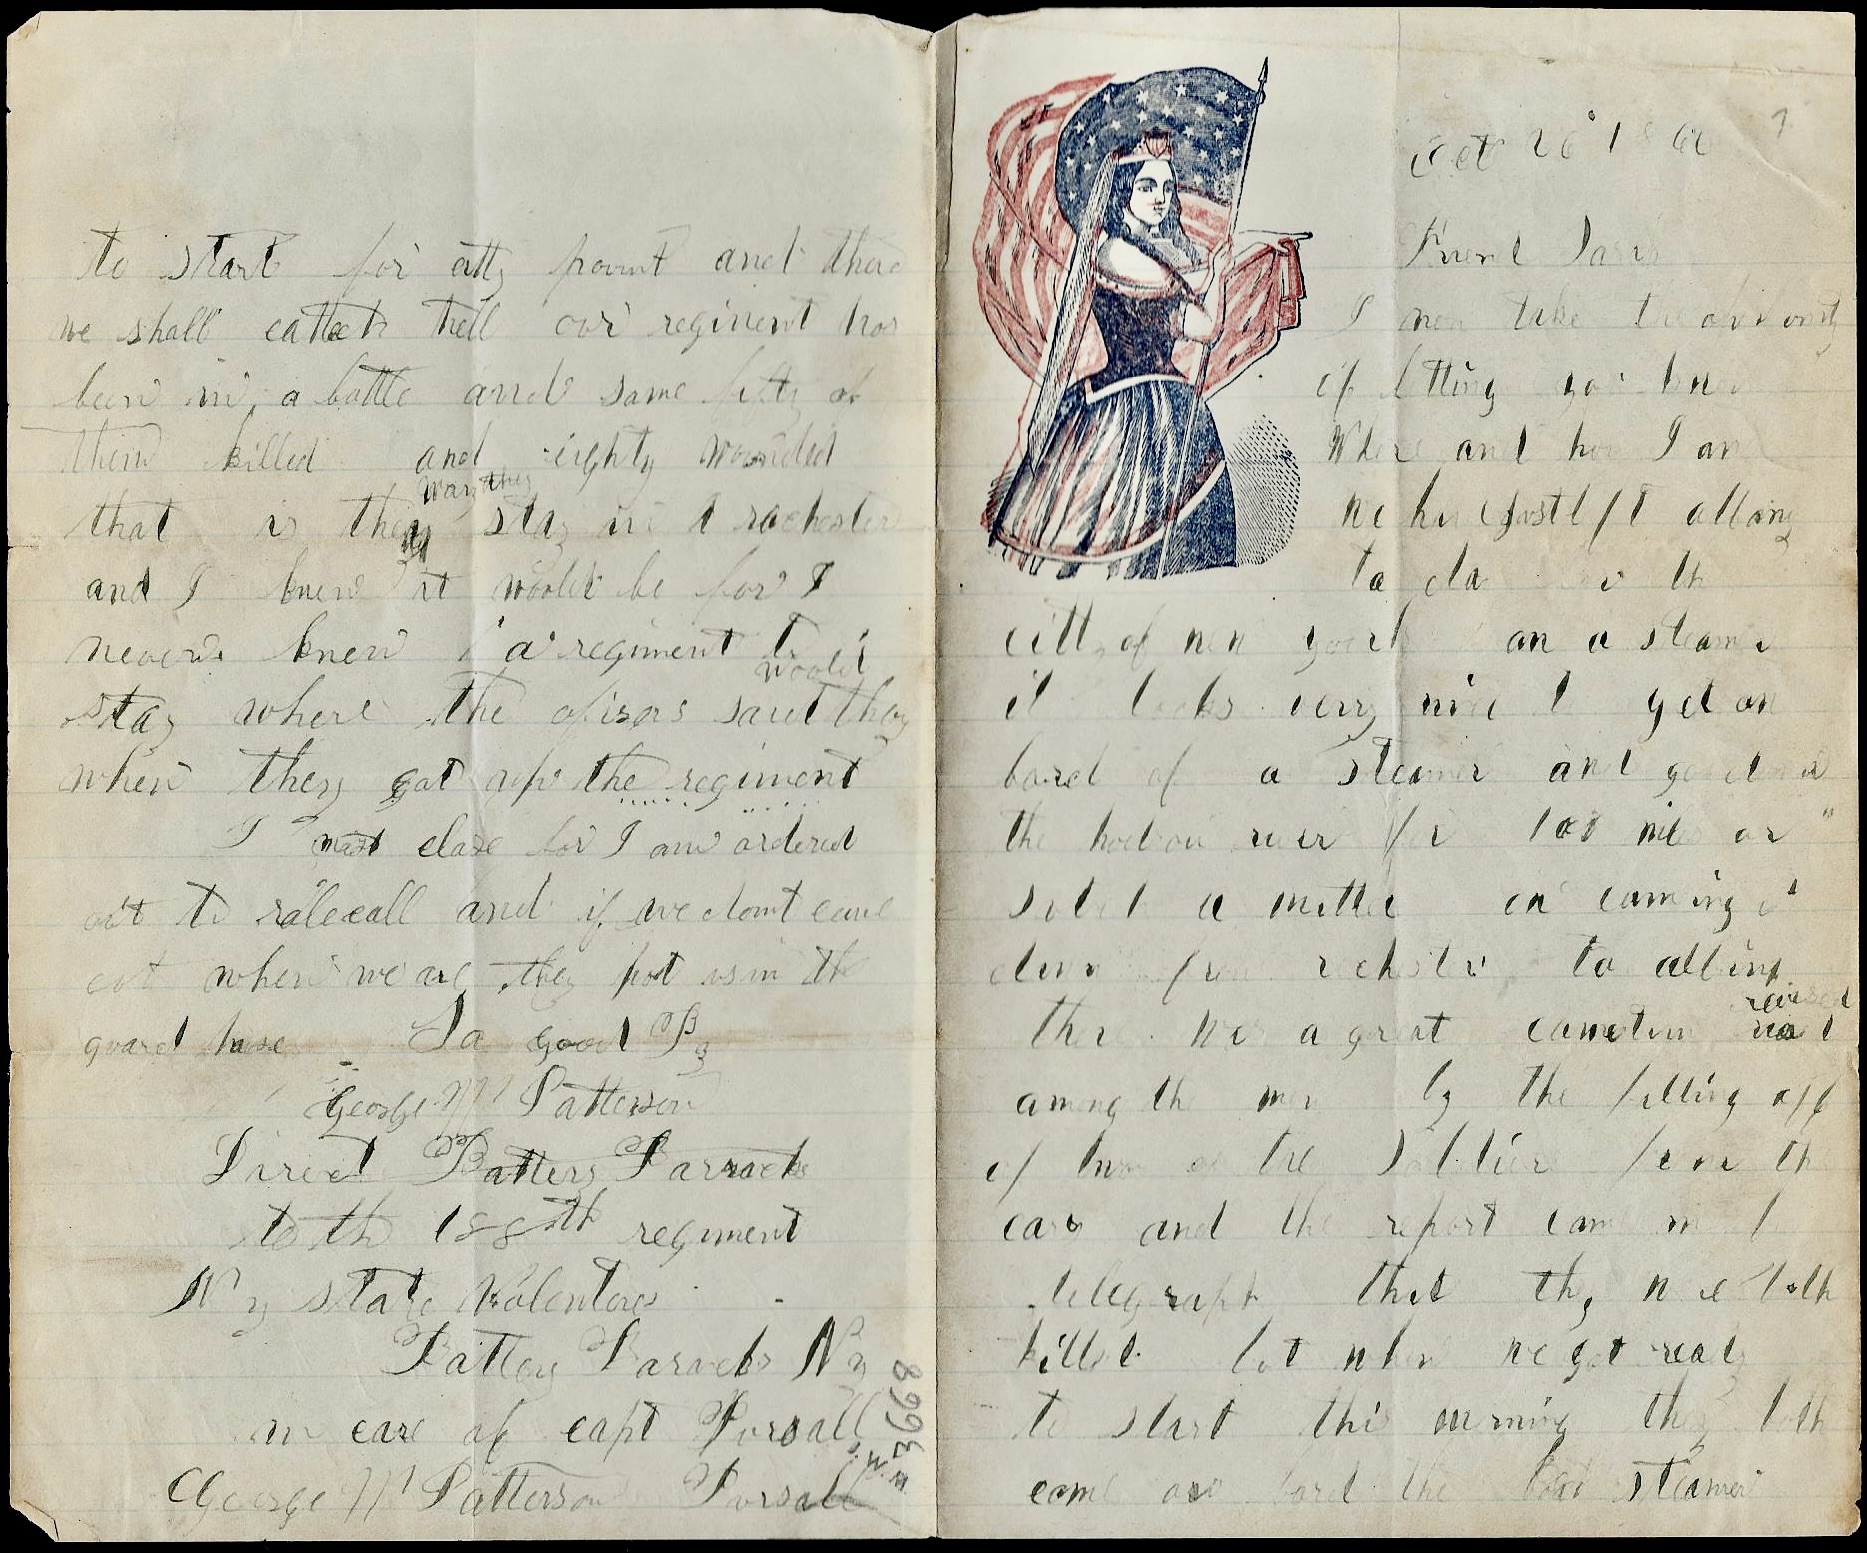 Oct 26 186
Friend Sarah
I now take the
of letting you know
Where and how I am
we have just left albany
to the
citty of new york on a steamer
it looks very nice to get on
bord of a steamer and go down
the hudson river for 100 miles or
a on coming
down from rochester to albiny
ther was a great comotion raised
among the men by the falling off
of two of the Soldiers from the
cars and the report came in
telegraph that they were both
killed but when we got ready
to start this morning they both
come on bord the steamer
to start for citty point and there
we shall cattch hell our regiment has
been in a battle and some fifty of
them killed and eighty wounded
that is the way they stay in rochester
and I knew it woold be for I
never knew a regiment to
stay where the ofisors said they woold
when they got up the regiment
I must close for I am ordered
out to rolecall and if we dont come
out when we are they put us in the
guard house So good By
George W Patterson
Direct Battery Barracks
to th 188th regiment
N y state Volentores
Battery Baracks N y
in care of capt Porsall
George W Patterson Porsall
W.W.
38668